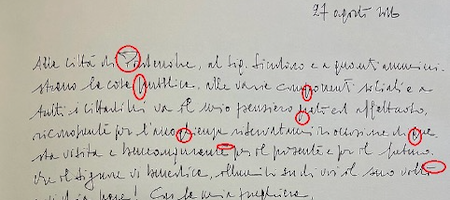 27 agosto
Alla città di al Sig. Sindaco e a quanti ammini-
strano la cosa pubblica, alle varie componenti sociali e a
tutti i cittadini va il mio pensiero grato ed affettuoso,
riconoscente per l'accoglienza riservatami in occasione di que-
sta visita e beneaugurante per il presente e per il futuro.
Che il Signore vi benedica, illumini su di voi il suo volto
pace! Con la mia preghiera,